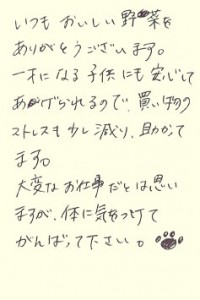 いつも おいしい 野菜を
ありがとうございます。
一才になる子供にも安心して
あげられるので、買い物の
ストレスも少し減り、助かって
ます。
大変なお仕事だとは思い
ますが、体に気をつけて
がんばって下さい。